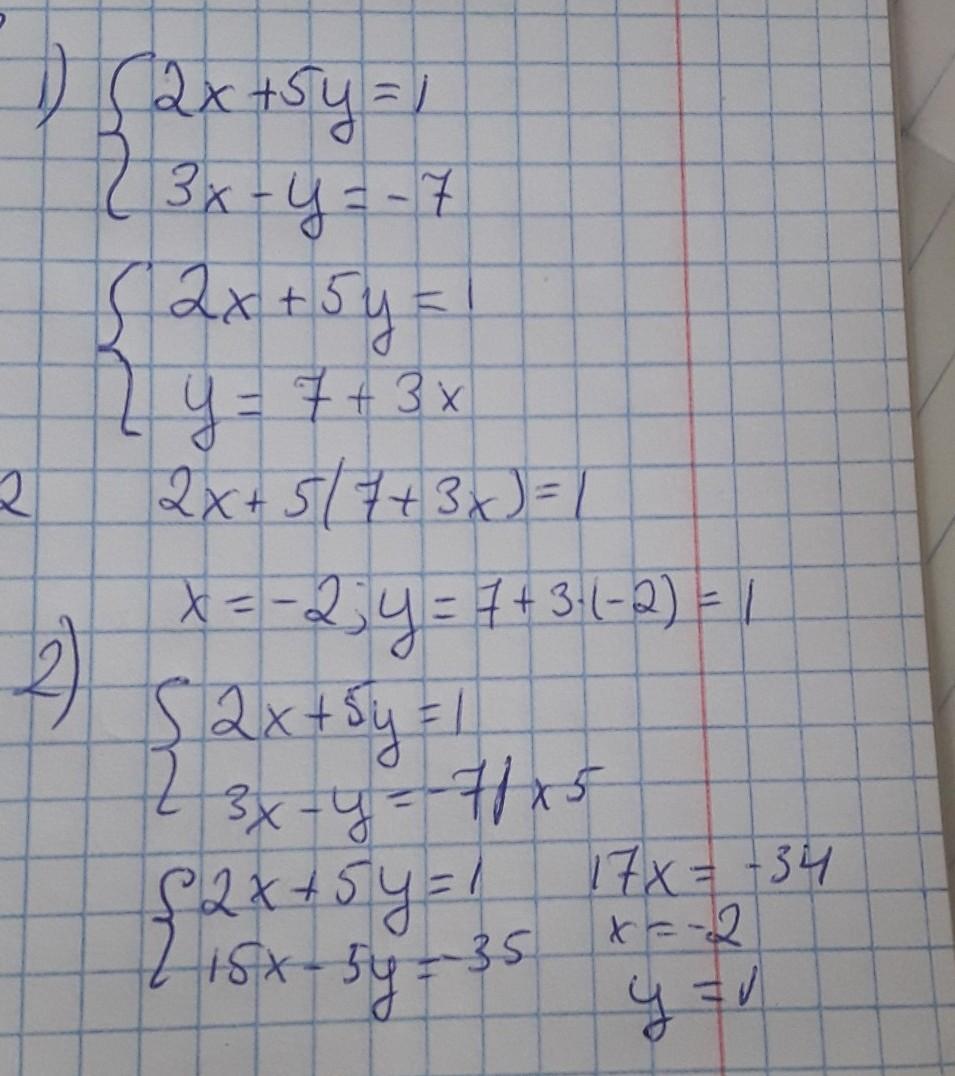 1) { 2x + 5y = 1
3x - y = -7
{ 2x + 5y = 1
y = 7 + 3x
2 2x + 5(7 + 3x) = 1
x = -2; y = 7 + 3·(-2) = 1
2) { 2x + 5y = 1
3x - y = -7 | x 5
{ 2x + 5y = 1
15x - 5y = -35
17x = -34
x = -2
y = 1